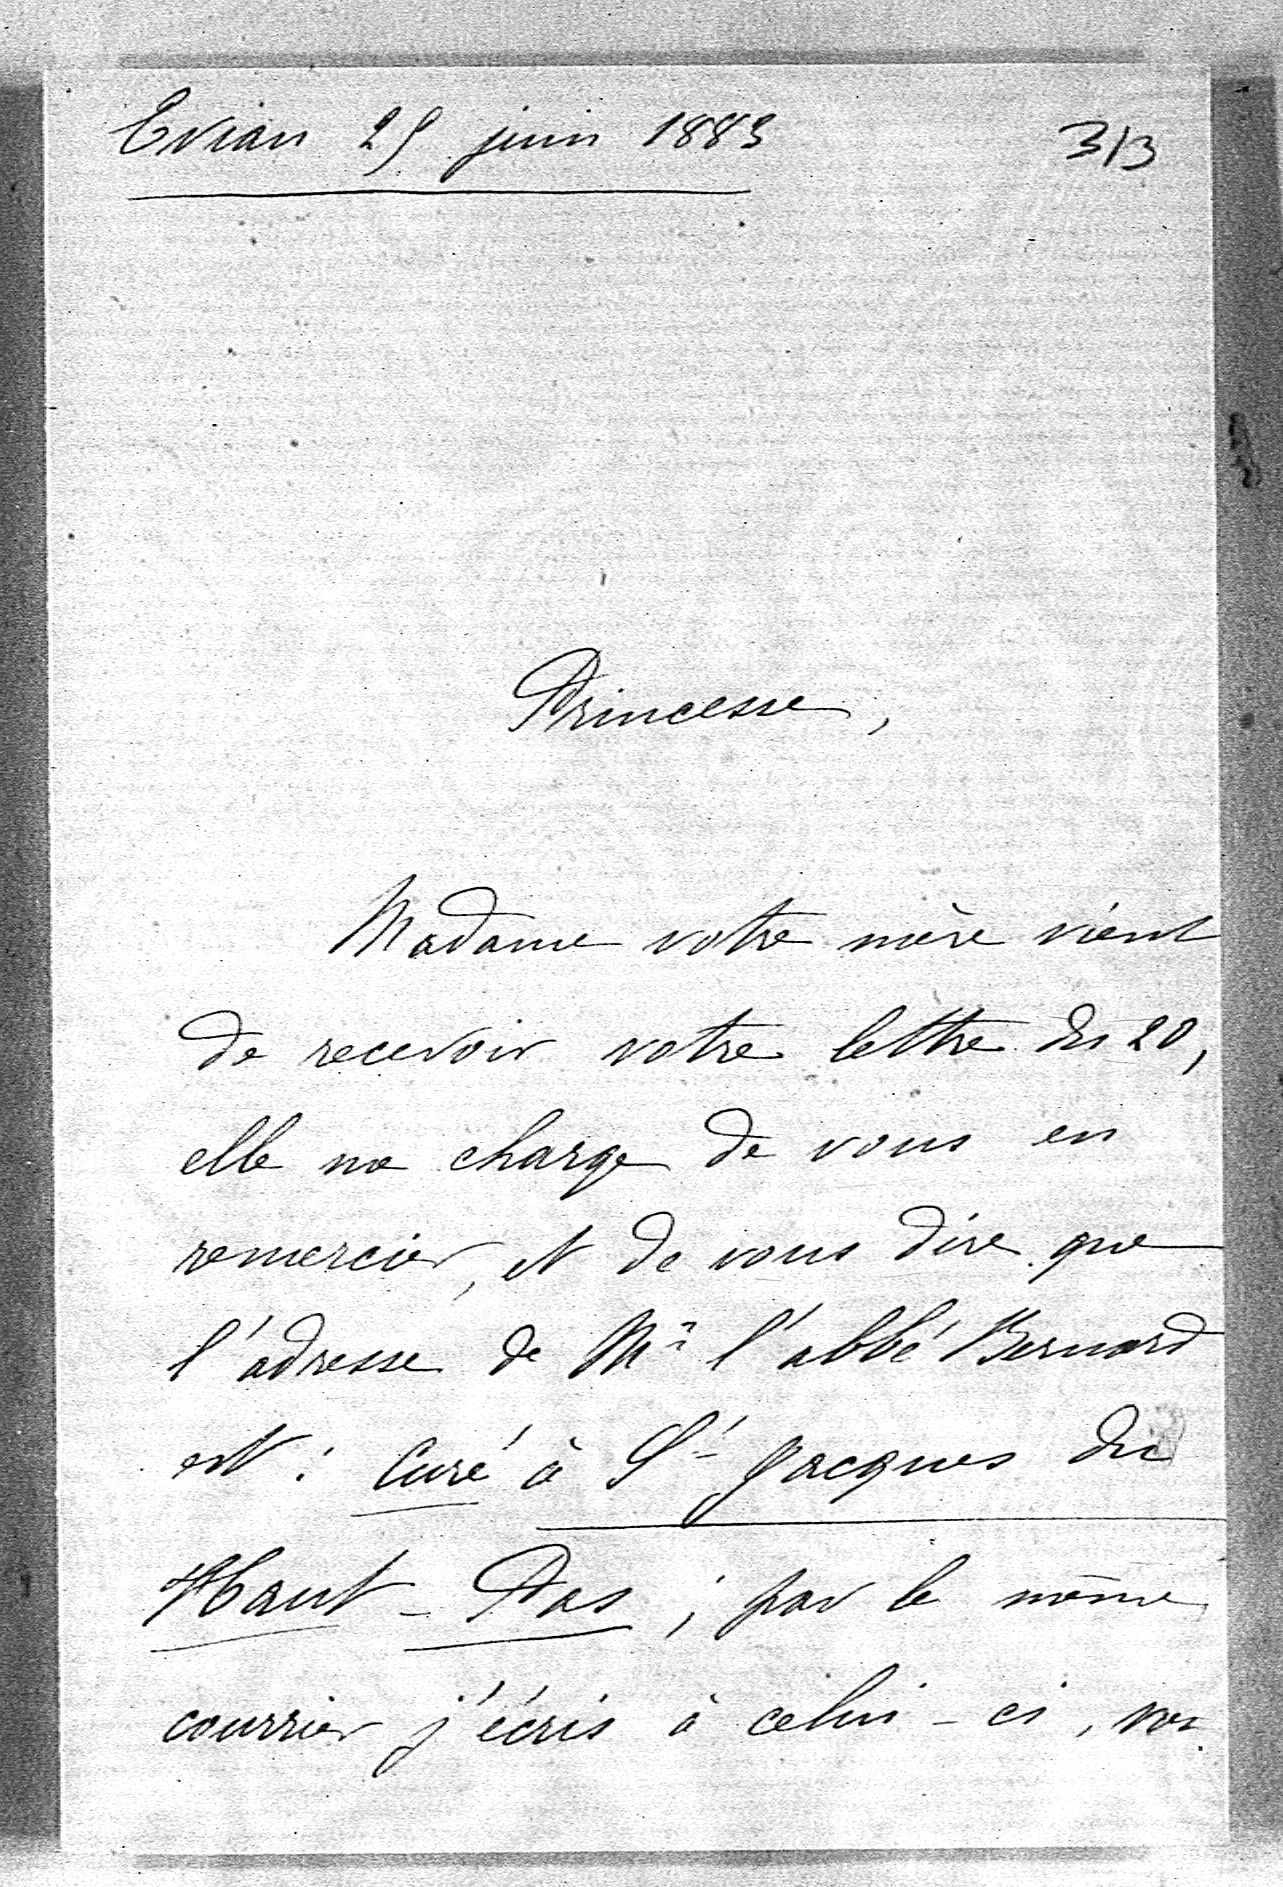 Evian 25 juin 1883
313
Princesse,
Madame votre mère vient
de recevoir votre lettre du 20,
elle me charge de vous en
remercier, et de vous dire que
l'adresse de Mr l'abbé Bernard
est : Curé à St Jacques du
Haut-Pas ; par le même
courrier j'écris à celui-ci,